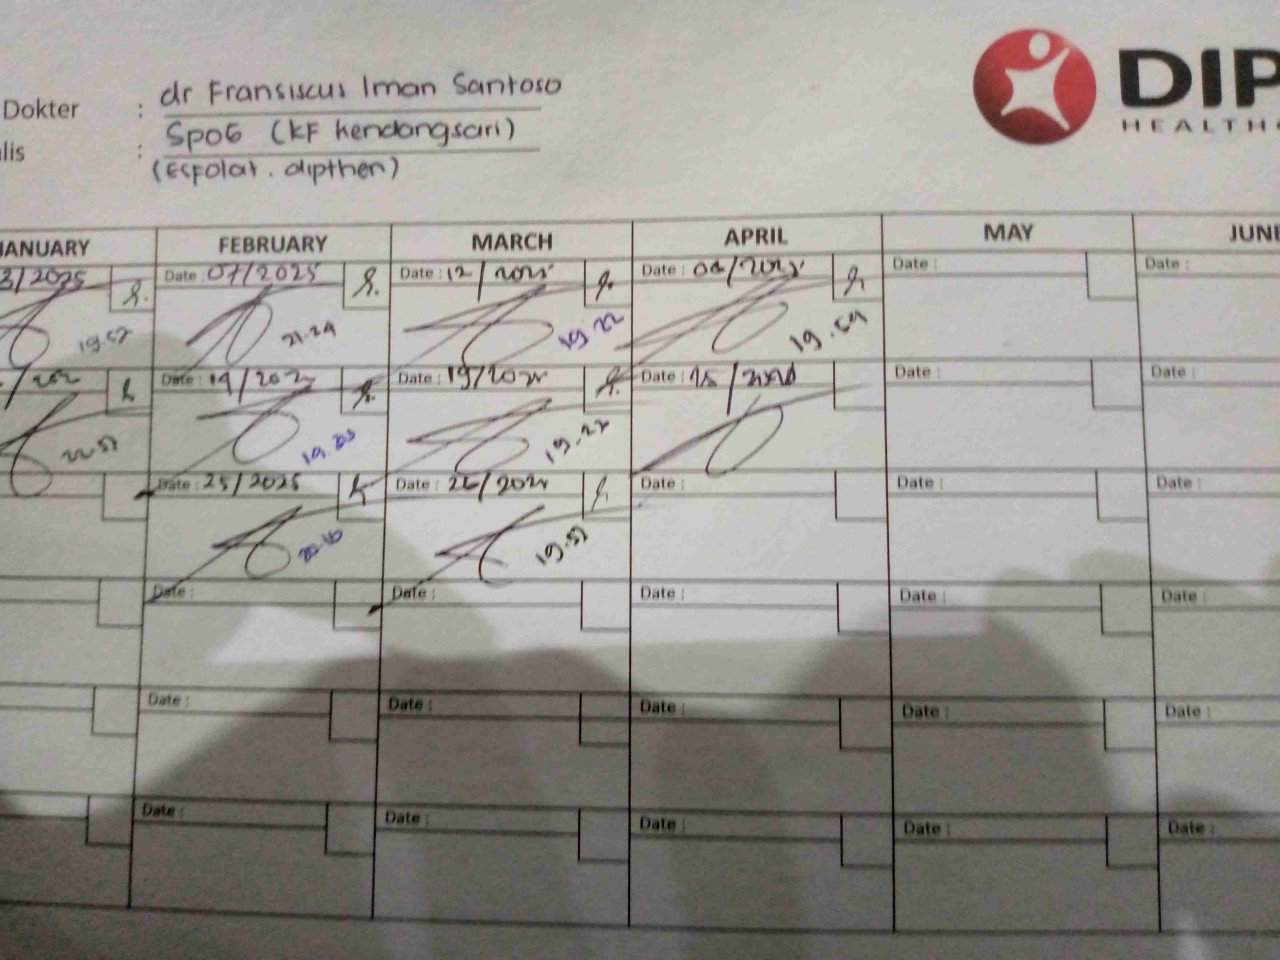 Dokter : dr Fransiscus Iman Santoso
DIP
HEALTH
lis : SpOG (KF Kendangsari)
(Esfolat . dipthen)
JANUARY FEBRUARY MARCH APRIL MAY JUNE
3/2025 Date : 07/2025 Date : 12/2025 Date : Date : Date :
19.57 21.29 19.22 19.59
Date : 19/202 Date : 19/202 Date : Date : Date :
22.57 19.27
Date : 25/2025 Date : 26/202 Date : Date : Date :
19.57
Date : Date : Date : Date : Date :
Date : Date : Date : Date : Date :
Date : Date : Date : Date : Date :